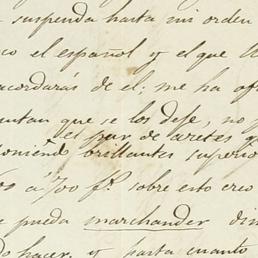 suspenda hasta mi orden
co el español y el que
acordarás de el; me ha
untan que se los deje, no
el par de aretes
oniendo brillantes superio
os a 700 fs. sobre esto creo
e pueda marchander
do hacer, y hasta cuanto